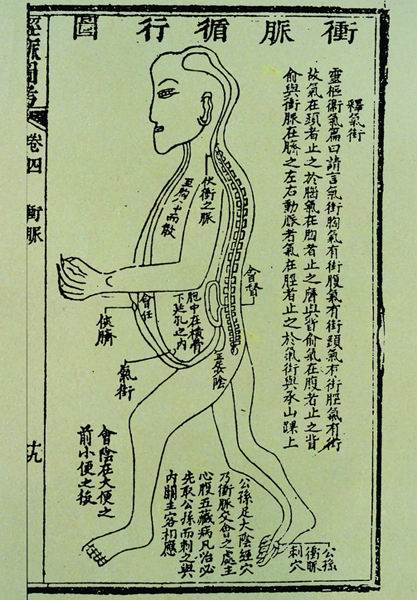 衝脈循行圖
釋氣街
靈樞衛氣篇曰請言氣街胸氣有街腹氣有街頭氣有街脛氣有街
故氣在頭者止之於腦氣在胸者止之膺與背俞氣在腹者止之背
俞與衝脈在臍之左右動脈者氣在脛者止之於氣街與承山踝上
伏衝之脈
至胸中而散
會督
會任
胞中在橫骨
下廷孔之內
至會陰
俠臍
氣街
公孫
衝脈
刺穴
公孫足太陰經穴
乃衝脈交會之處主
心腹五藏病凡治必
先取公孫而刺之與
內關主客相應
會陰在大便之
前小便之後
經脈圖考
卷四
衝脈